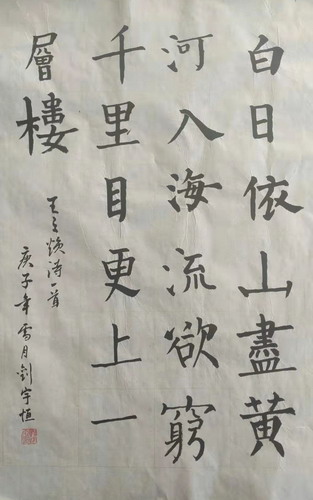 白日依山盡黄
河入海流欲窮
千里目更上一
層樓
王之煥诗一首
庚子年雪月劉宇恒